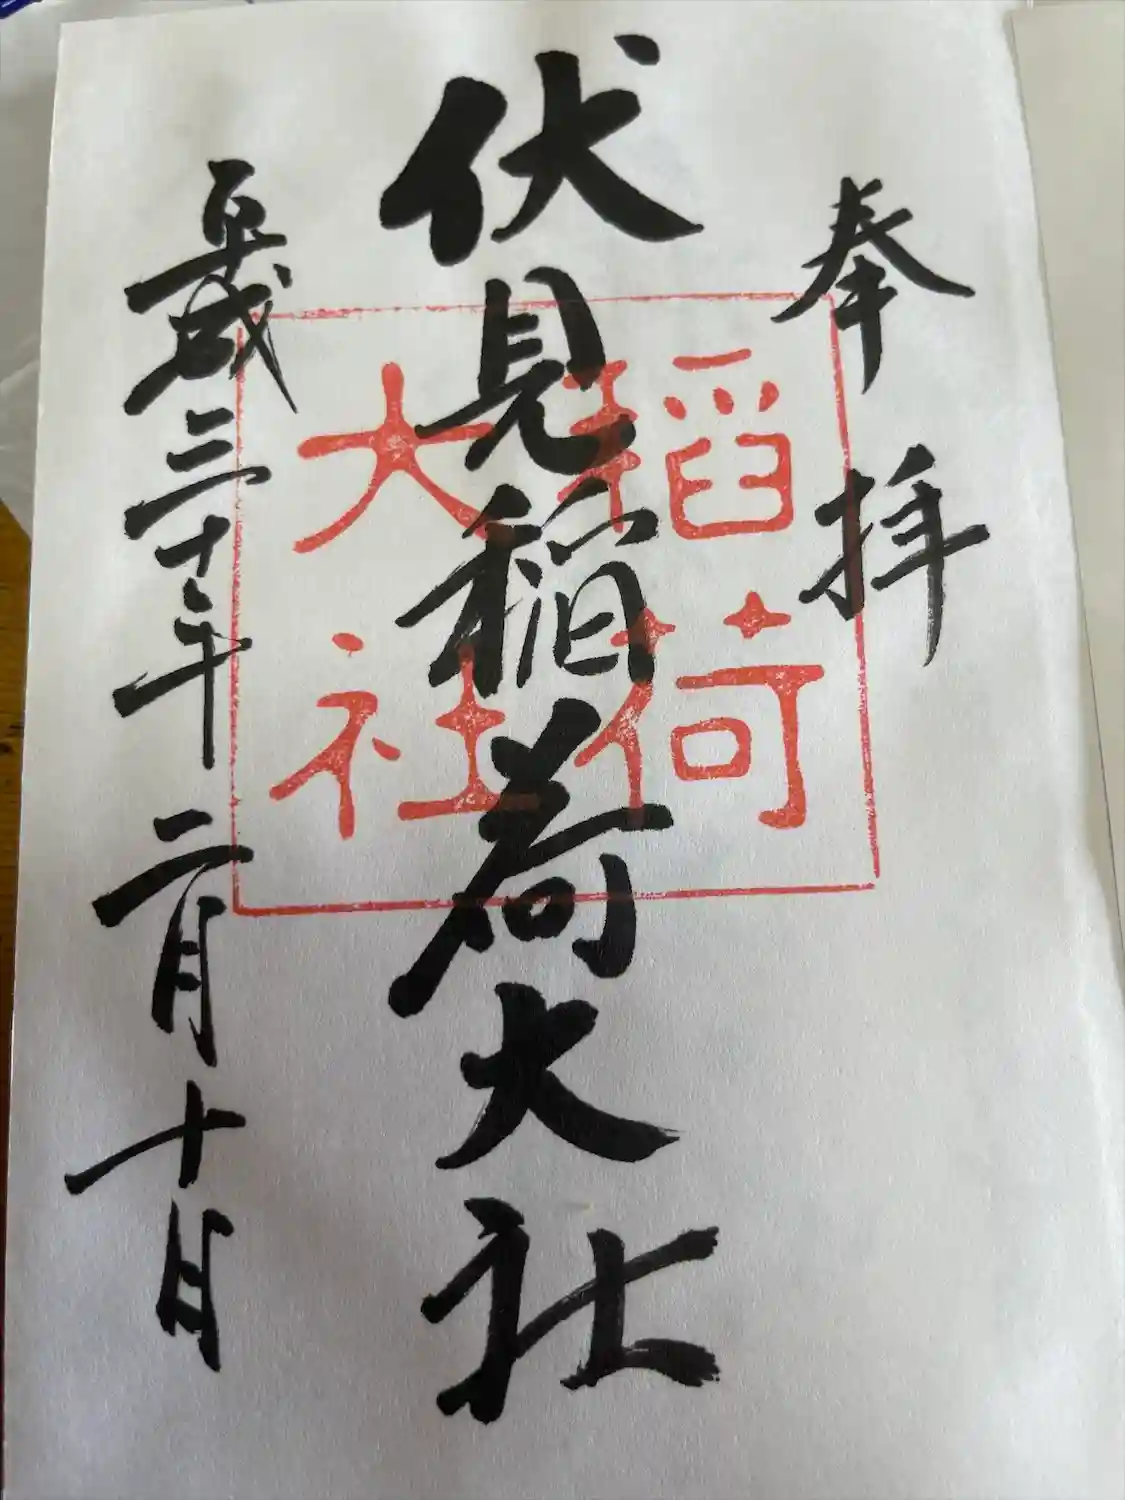 奉拝
伏見稲荷大社
稲荷
大社
平成三十年二月十日